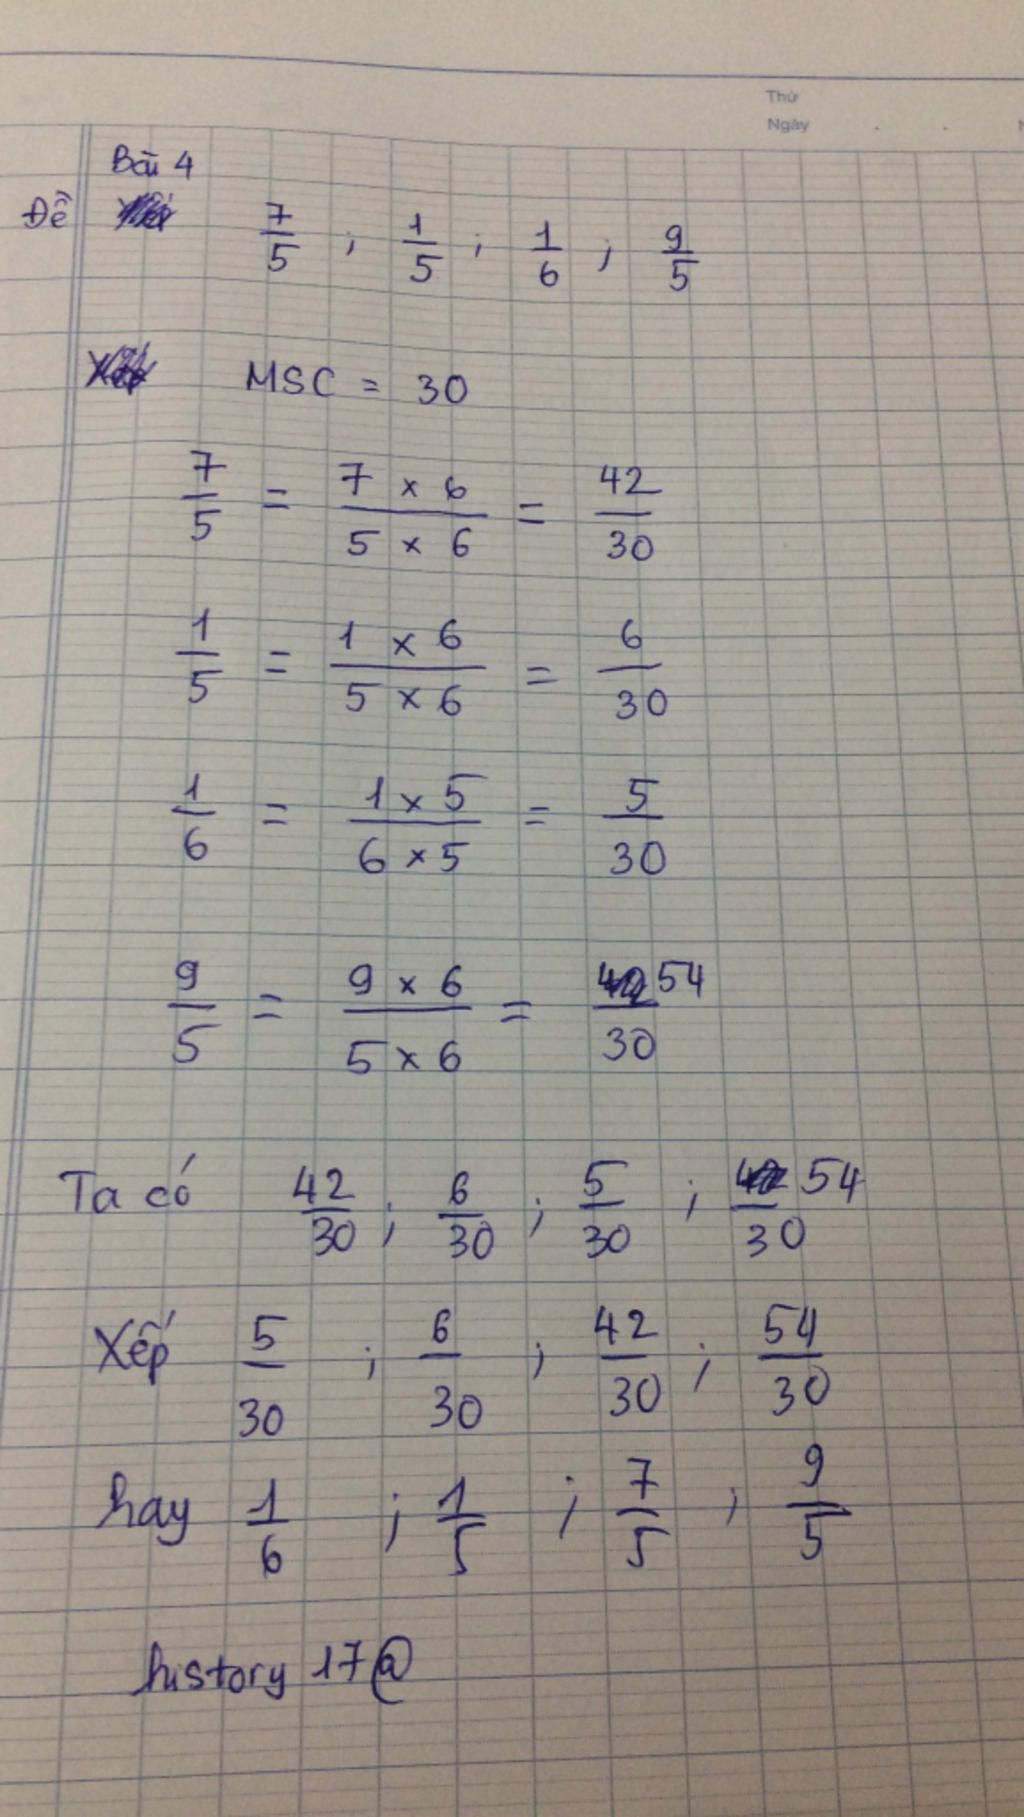 Thứ
Ngày
Bài 4
Đề 7/5 ; 1/5 ; 1/6 ; 9/5
MSC = 30
7/5 = 7 x 6 / 5 x 6 = 42/30
1/5 = 1 x 6 / 5 x 6 = 6/30
1/6 = 1 x 5 / 6 x 5 = 5/30
9/5 = 9 x 6 / 5 x 6 = 54/30
Ta có 42/30 ; 6/30 ; 5/30 ; 54/30
Xếp 5/30 ; 6/30 ; 42/30 ; 54/30
hay 1/6 ; 1/5 ; 7/5 ; 9/5
history 17@